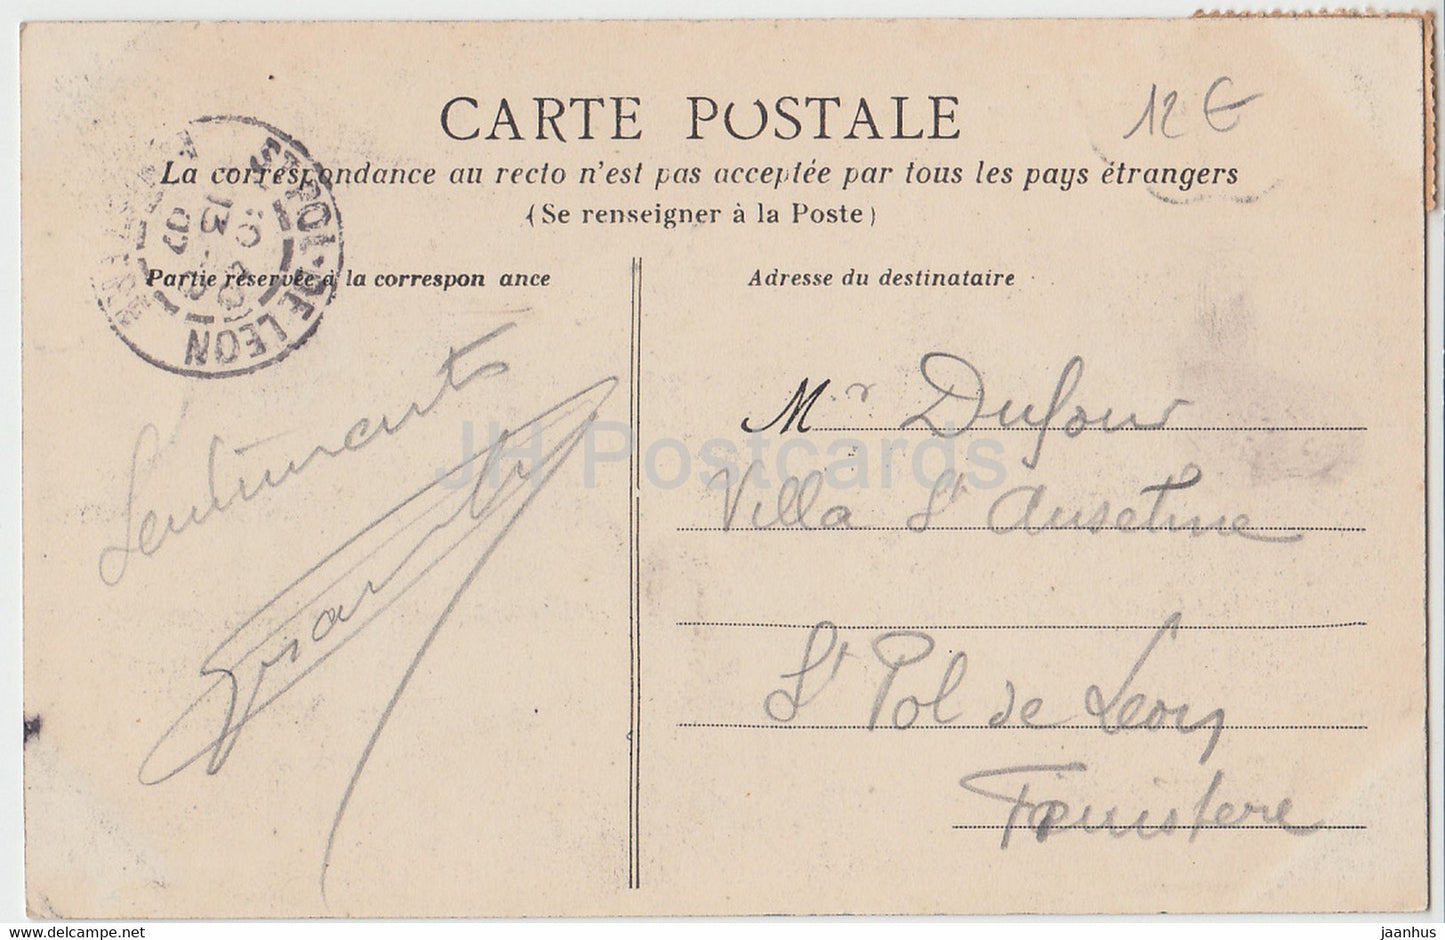 CARTE POSTALE
12 €
La correspondance au recto n'est pas acceptée par tous les pays étrangers
(Se renseigner à la Poste)
Partie réservée à la correspon ance
Adresse du destinataire
ST POL-DE LEON
13
Sentiments
Mr Dufour
Villa St Anselme
St Pol de Leon
Finistere
JH Postcards
jaanhus